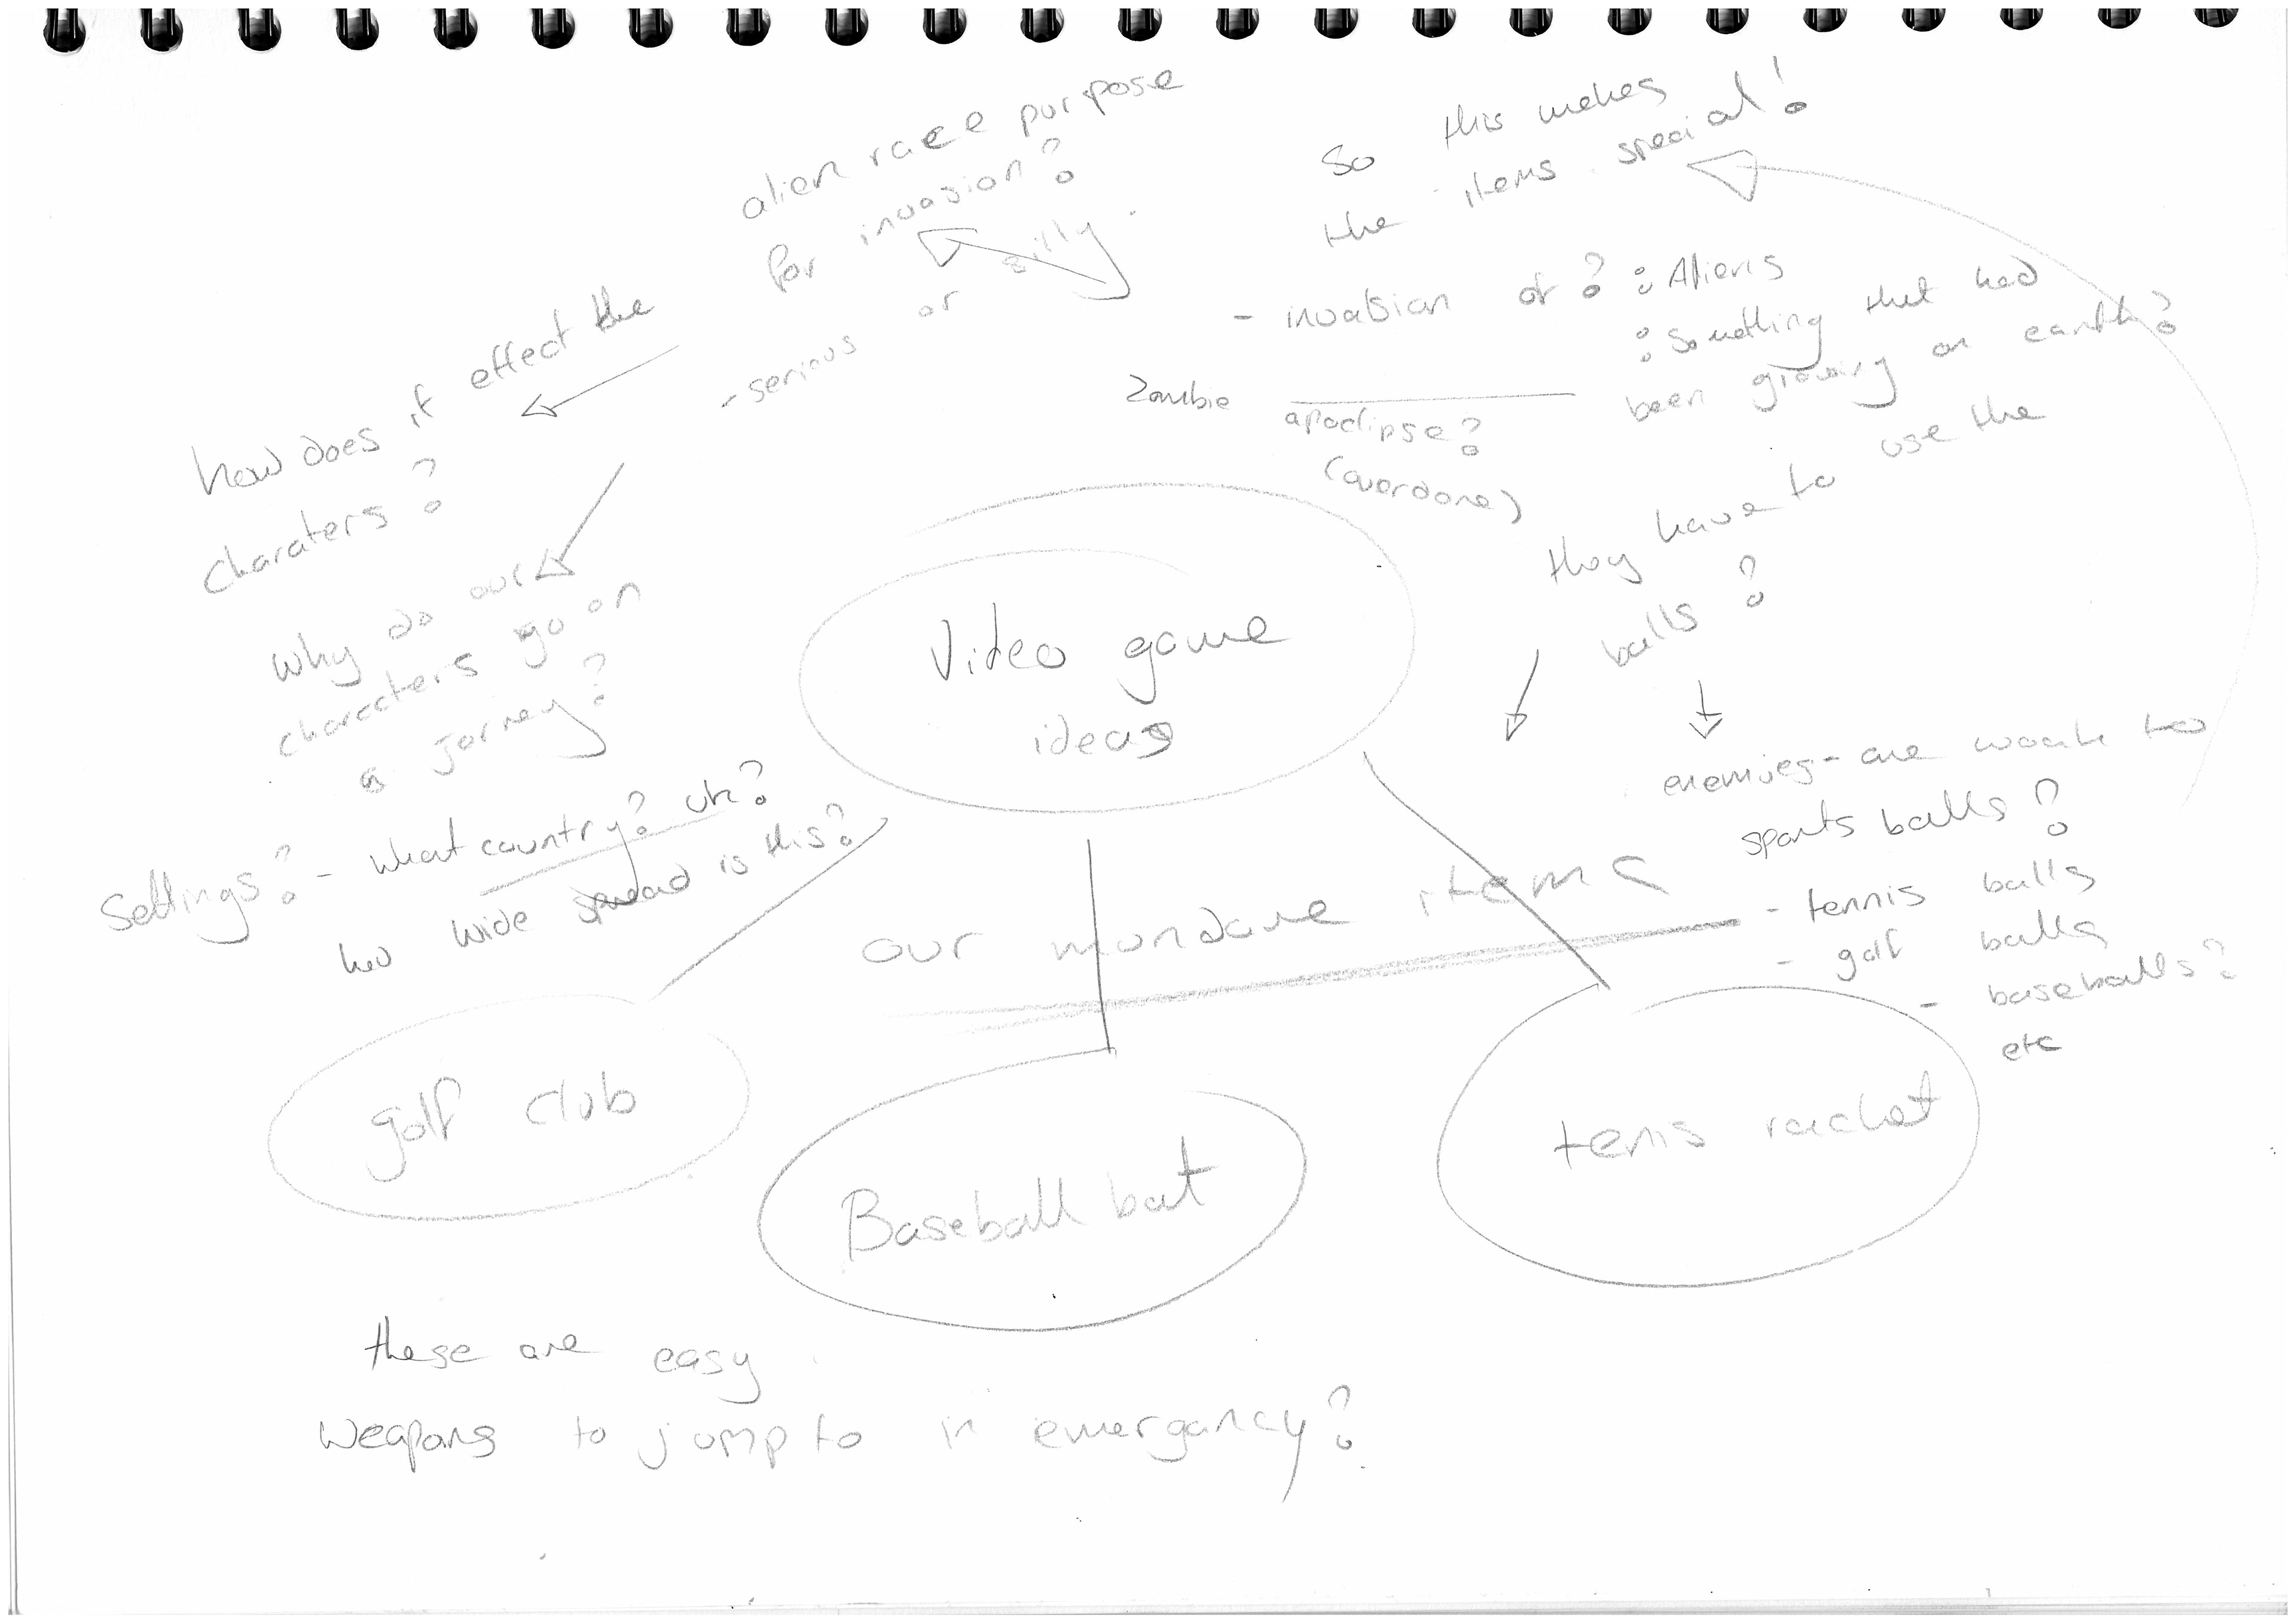 alien race purpose
for invasion?
- serious or silly
how does it effect the
charaters?
Why do our
characters go on
a jorney?
Settings? - what country? uk?
how wide spread is this?
So this makes
the items special!
- invabsian of? : Aliens
: Something that had
been growing on earth?
Zombie apoclipse?
(overdone)
they have to use the
balls?
enemies - are weak to
sports balls?
- tennis balls
- golf balls
- baseballs?
etc
Video game
ideas
our mundane items
golf club
Baseball bat
tenis racket
these are easy
weapons to jump to in emergancy?